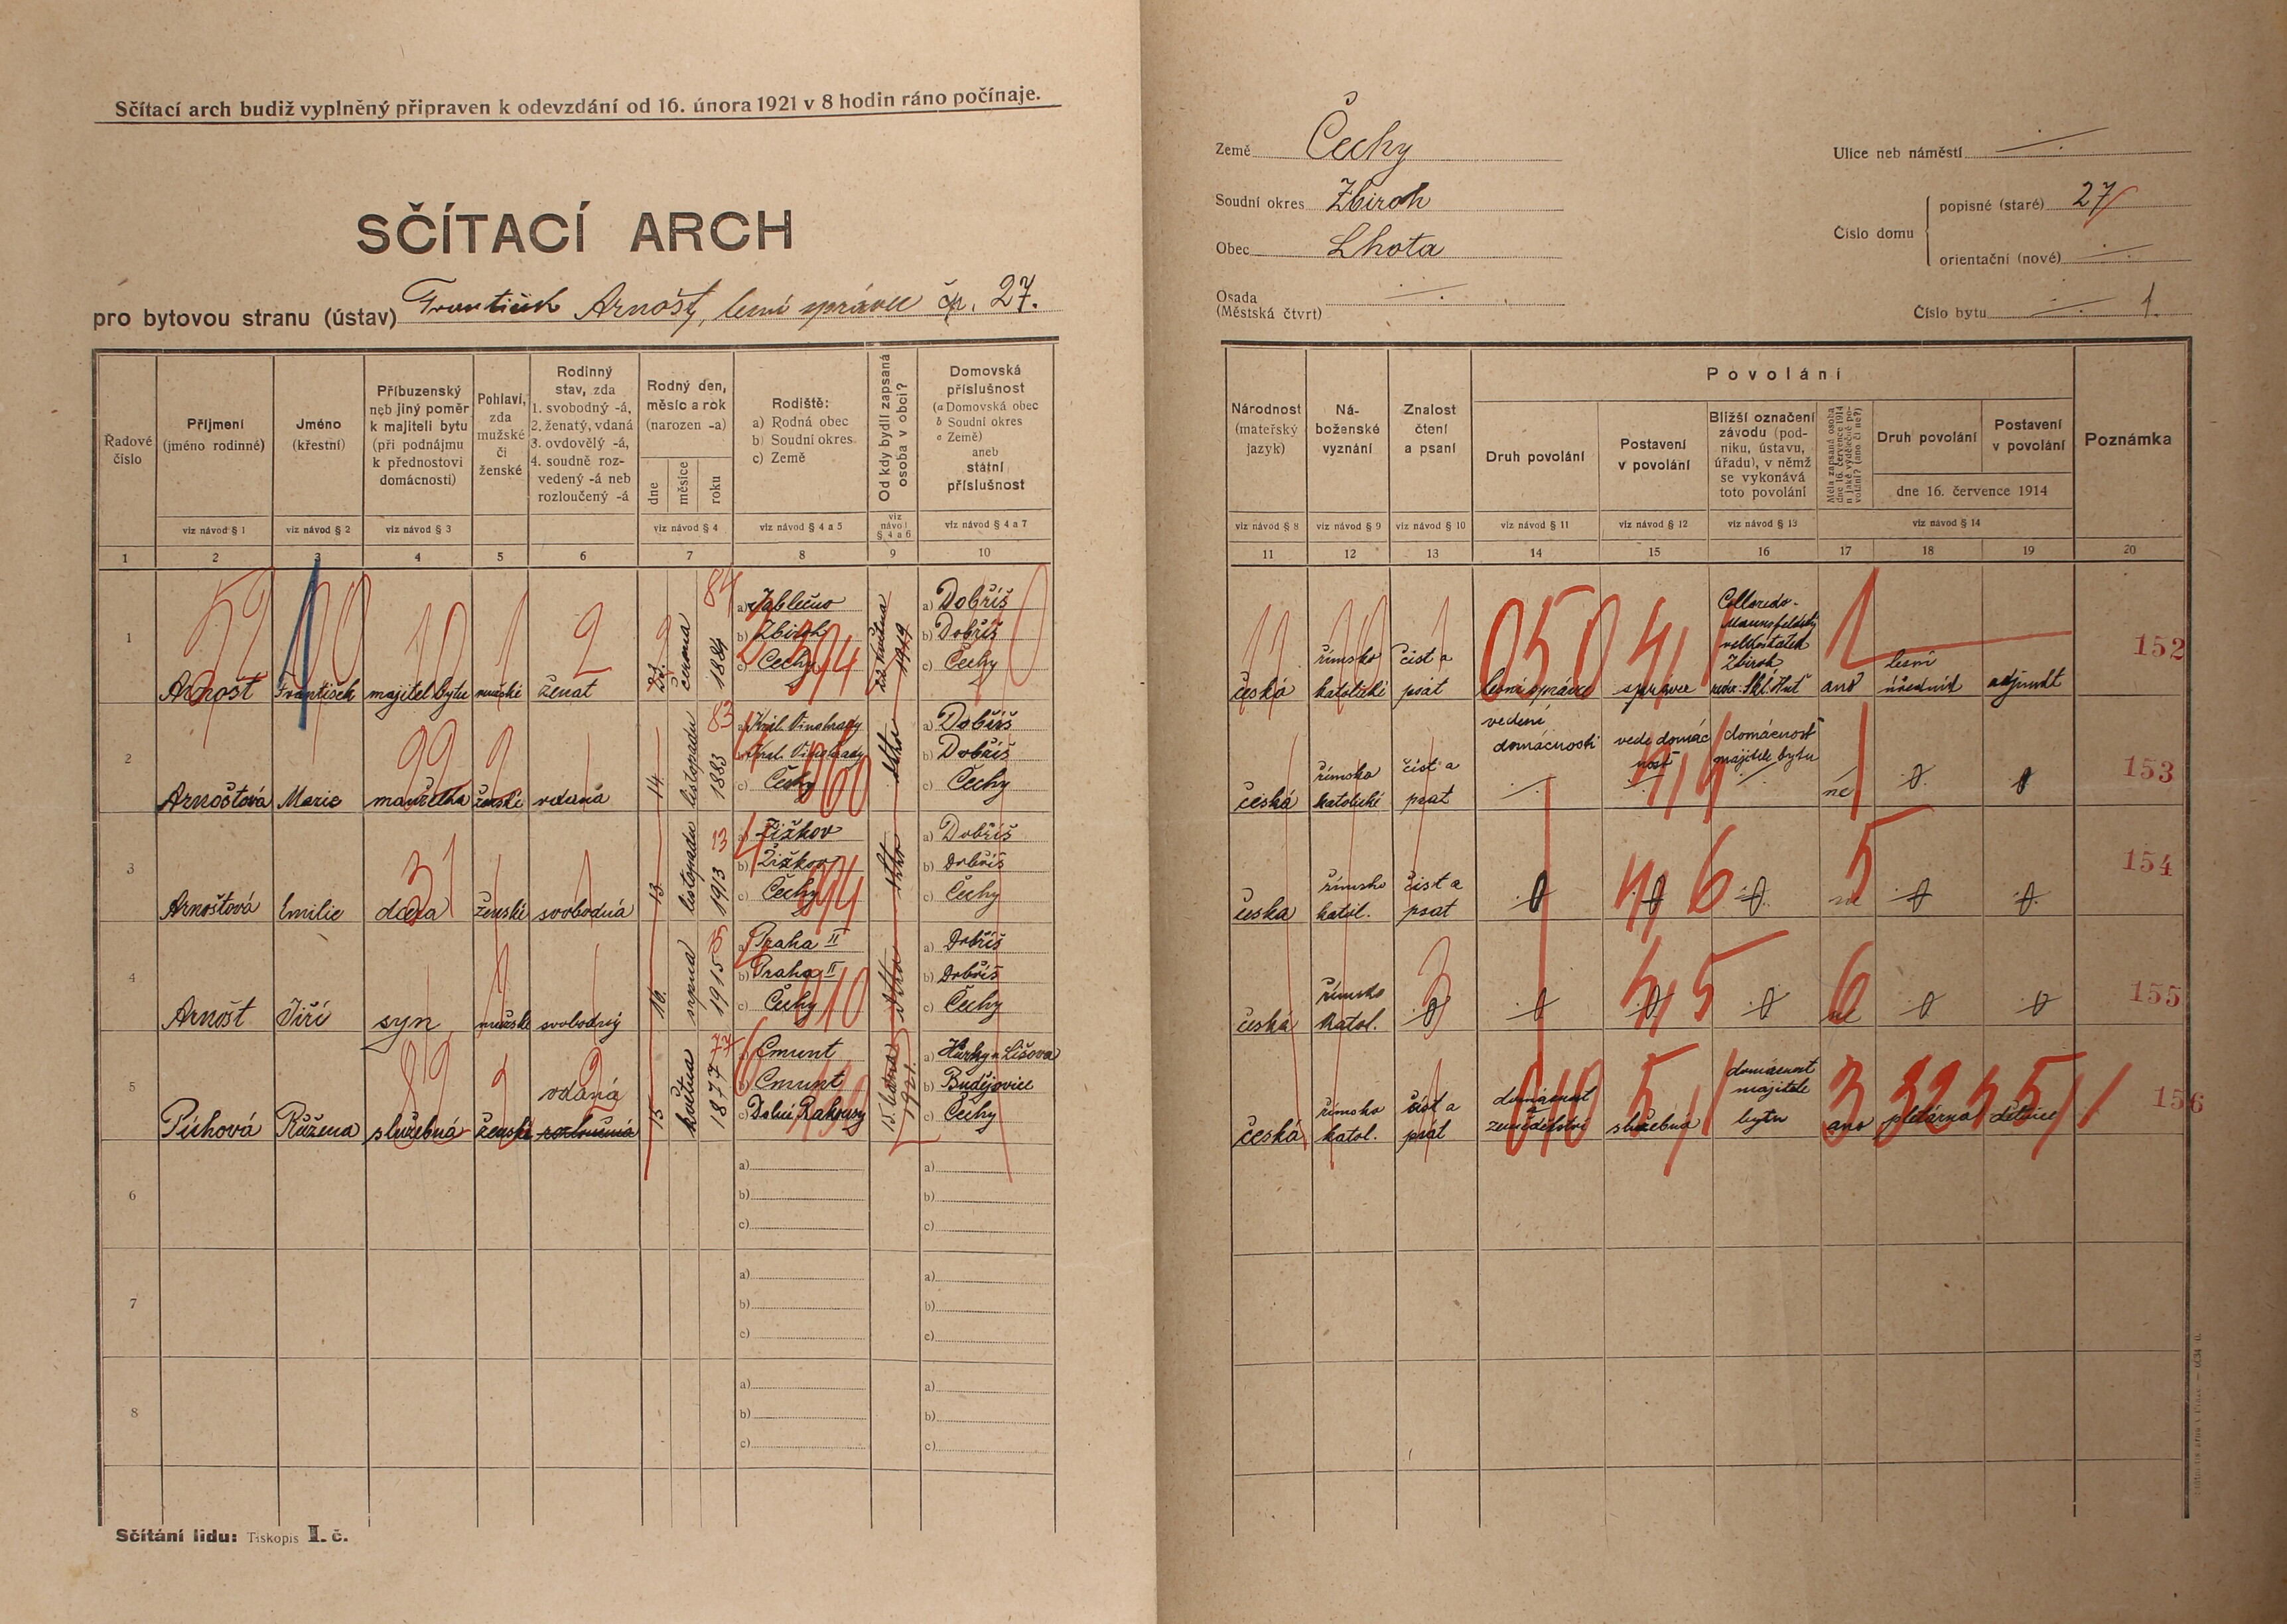 Sčítací arch budiž vyplněný připraven k odevzdání od 16. února 1921 v 8 hodin ráno počínaje.
SČÍTACÍ ARCH
pro bytovou stranu (ústav) František Arnošt, lesní správce čp. 27.
Země Čechy
Soudní okres Zbiroh
Obec Lhota
Osada
(Městská čtvrt)
Ulice neb náměstí
Číslo domu
popisné (staré) 27
orientační (nové)
Číslo bytu 1.
Řadové číslo
Příjmení (jméno rodinné)
Jméno (křestní)
Příbuzenský neb jiný poměr k majiteli bytu (při podnájmu k přednostovi domácnosti)
Pohlaví, zda mužské či ženské
Rodinný stav, zda 1. svobodný -á, 2. ženatý, vdaná 3. ovdovělý -á, 4. soudně rozvedený -á neb rozloučený -á
Rodný den, měsíc a rok (narozen -a)
dne měsíce roku
Rodiště: a) Rodná obec b) Soudní okres c) Země
Od kdy bydlí zapsaná osoba v obci?
Domovská příslušnost (a Domovská obec b Soudní okres c Země) aneb státní příslušnost
viz návod § 1 viz návod § 2 viz návod § 3 viz návod § 4 viz návod § 4 a 5 viz návod § 4 a 6 viz návod § 4 a 7
1 2 3 4 5 6 7 8 9 10
Národnost (mateřský jazyk)
Náboženské vyznání
Znalost čtení a psaní
Povolání
Druh povolání
Postavení v povolání
Bližší označení závodu (podniku, ústavu, úřadu), v němž se vykonává toto povolání
Měla zapsaná osoba dne 16. července 1914 nějaké výdělečné povolání? (ano či ne?)
Druh povolání
Postavení v povolání
dne 16. července 1914
Poznámka
viz návod § 8 viz návod § 9 viz návod § 10 viz návod § 11 viz návod § 12 viz návod § 13 viz návod § 14
11 12 13 14 15 16 17 18 19 20
1 Arnošt František majitel bytu mužské ženat 22. června 1884
a) Jablečno
b) Zbiroh
c) Čechy
1919
a) Dobříš
b) Dobříš
c) Čechy
česká římsko katolické číst a psát lesní správce správce
Colloredo-
Mannsfeldský
velkostatek
Zbiroh
ano lesní úředník adjunkt 152
2 Arnoštová Marie manželka ženské vdaná 14. listopadu 1883
a) Král. Vinohrady
b) Král. Vinohrady
c) Čechy
a) Dobříš
b) Dobříš
c) Čechy
česká římsko katolické číst a psat vedení domácnosti vede domácnost domácnost majitele bytu ne 153
3 Arnoštová Emilie dcera ženské svobodná 13. listopadu 1913
a) Žižkov
b) Žižkov
c) Čechy
a) Dobříš
b) Dobříš
c) Čechy
česka římsko katol. číst a psat ne 154
4 Arnošt Jiří syn mužské svobodný 16. srpna 1915
a) Praha II
b) Praha II
c) Čechy
a) Dobříš
b) Dobříš
c) Čechy
česká římsko katol. ne 155
5 Píchová Růžena služebná ženské vdaná rozloučená 15. května 1877
a) Cmunt
b) Cmunt
c) Dolní Rakousy
15. 1921.
a) Hůrky u Lišova
b) Budějovice
c) Čechy
česká římsko katol. číst a psát domácnost a zemědělství služebná domácnost majitele bytu ano pletárna dělnice 156
6
a)
b)
c)
a)
b)
c)
7
a)
b)
c)
a)
b)
c)
8
a)
b)
c)
a)
b)
c)
Sčítání lidu: Tiskopis I. č.